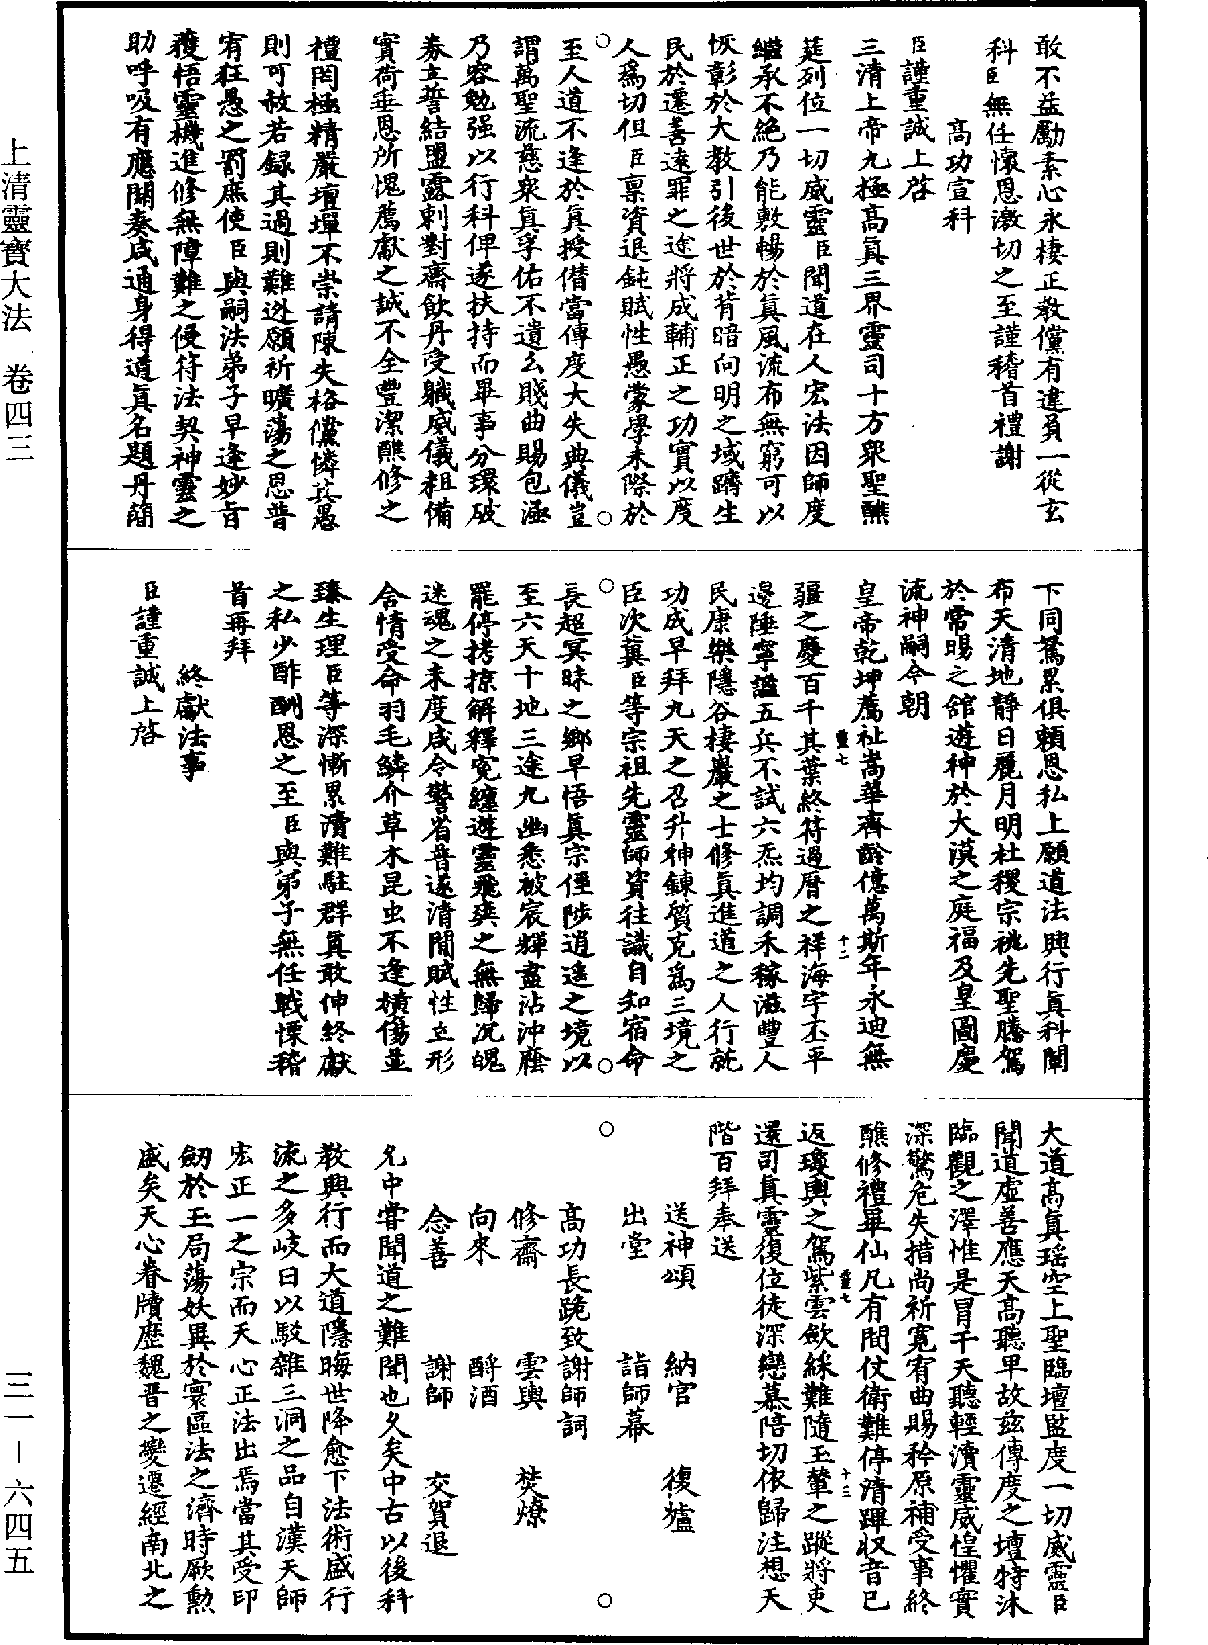 上清靈寶大法 卷四三
三一－六四五
敢不益勵素心永棲正教儻有違負一從玄
科臣無任懷恩激切之至謹稽首禮謝
高功宣科
臣謹重誠上啓
三清上帝九極高真三界靈司十方衆聖醮
筵列位一切威靈臣聞道在人宏法因師度
繼承不絕乃能敷暢於真風流布無窮可以
恢彰於大教引後世於背暗向明之域躋生
民於遷善遠罪之途將成輔正之功實以度
人爲切但臣禀資退鈍賦性愚蒙學未際於
至人道不逢於真授僭當傳度大失典儀豈
謂萬聖流慈衆真孚佑不遺幺賤曲賜包涵
乃容勉强以行科俾遂扶持而畢事分環破
券立誓結盟露刺對齋飲丹受職威儀粗備
實荷垂恩所愧薦獻之誠不全豐潔醮修之
禮罔極精嚴壇墠不崇請陳失格儻憐其愚
則可赦若録其過則難逃願祈曠蕩之恩普
宥狂愚之罰庶使臣與嗣法弟子早逢妙旨
獲悟靈機進修無障難之侵符法契神靈之
助呼吸有應關奏咸通身得道真名題丹簡
下同騖累俱賴恩私上願道法興行真科闡
布天清地靜日麗月明社稷宗祧先聖騰駕
於常暘之舘遊神於大漠之庭福及皇圖慶
流神嗣今朝
皇帝乾坤薦祉嵩華齊齡億萬斯年永迪無
疆之慶百千其葉終符過曆之祥海宇丕平
邊陲寧謐五兵不試六炁均調禾稼滋豐人
民康樂隱谷棲巖之士修真進道之人行就
功成早拜九天之召升神鍊質克爲三境之
臣次冀臣等宗祖先靈師資往識自知宿命
長超冥昧之鄉早悟真宗徑陟逍遥之境以
至六天十地三途九幽悉被宸輝盡沾沖蔭
罷停拷掠解釋寃纏遊靈飛爽之無歸沉魄
迷魂之未度咸令警省普遂清閒賦性立形
含情受命羽毛鱗介草木昆虫不逢橫傷並
臻生理臣等深慚累瀆難駐群真敢伸終獻
之私少酢酬恩之至臣與弟子無任戰慄稽
首再拜
終獻法事
臣謹重誠上啓
大道高真瑶空上聖臨壇監度一切威靈臣
聞道虛善應天高聽卑故兹傳度之壇特沐
臨觀之澤惟是冒千天聽輕瀆靈威惶懼實
深驚危失措尚祈寬宥曲賜矜原補受事終
醮修禮畢仙凡有間仗衛難停清蹕収音已
返瓊輿之駕紫雲斂綵難隨玉輦之蹤將吏
還司真靈復位徒深戀慕陪切依歸注想天
階百拜奉送
送神頌 納官 復爐
出堂 詣師幕
高功長跪致謝師詞
修齋 雲輿 焚燎
向來 酹酒
念善 謝師 交賀退
允中嘗聞道之難聞也久矣中古以後科
教興行而大道隱晦世降愈下法術盛行
流之多岐曰以駁雜三洞之品自漢天師
宏正一之宗而天心正法出焉當其受印
劒於玉局蕩妖異於寰區法之濟時厥勲
盛矣天心眷牘歷魏晋之變遷經南北之